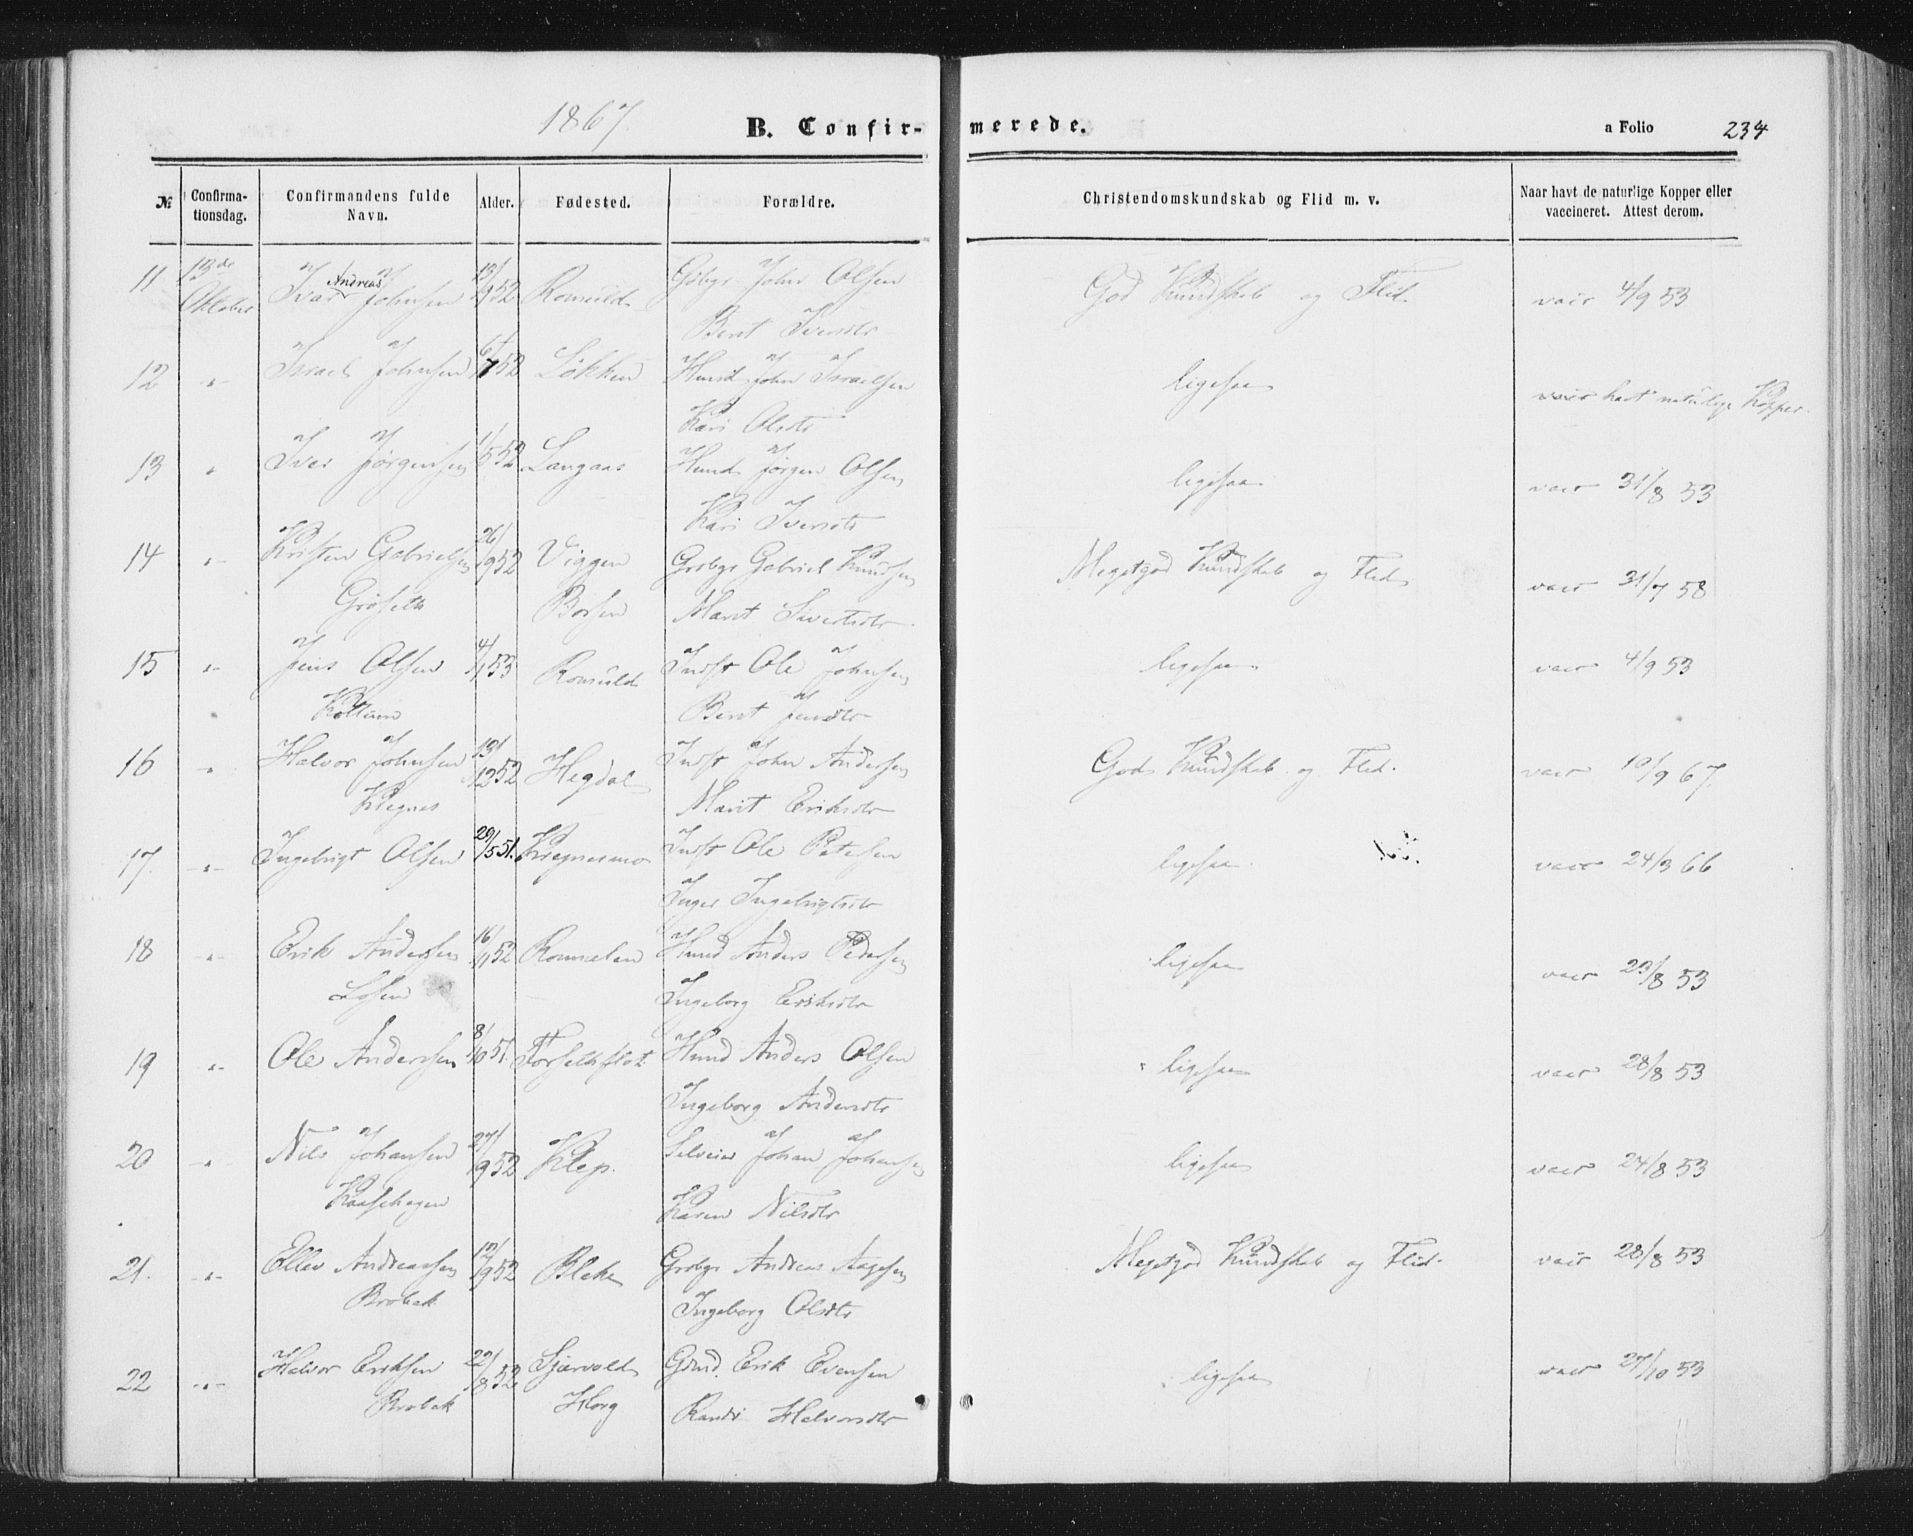 1867. B. Confirmerede. a Folio 234
№ Confirmationsdag. Confirmandens fulde Navn. Alder. Fødested. Forældre. Christendomskundskab og Flid m. v. Naar havt de naturlige Kopper eller vaccineret. Attest derom.
11 13de Oktober Ivar Andreas Johnsen 13/9 52 Romuld Gbgr John Olsen God Kundskab og Flid. vacc 4/9 53
Berit Iversdtr
12 " Israel Johnsen 6/7 52 Løkken Husm John Israelsen ligesaa havt naturlige Kopper.
Kari Olsdtr
13 " Iver Jørgensen 1/5 52 Langaas Husm Jørgen Olsen ligesaa vacc 31/8 53
Kari Iversdtr
14 " Kristen Gabrielsen 26/9 52 Viggen Grbgr Gabriel Knudsen Megetgod Kundskab og Flid vacc 31/7 58
Grøseth Børsen Marit Sivertsdtr
15 " Jens Olsen 4/1 53 Romuld Indst Ole Johnsen ligesaa vacc 4/9 53
Berit Jensdtr
16 " Halvor Johnsen 13/12 52 Hegdal Indst John Andersen God Kundskab og Flid. vacc 10/9 67.
Kregnes Marit Eriksdtr
17. " Ingebrigt Olsen 29/5 51. Kregnesmo Indst Ole Petersen ligesaa vacc 24/3 66
Inger Ingebrigtsdtr
18 " Erik Andersen 16/11 52 Husm Anders Pedersen ligesaa vacc 23/8 53
Losen Ingeborg Eriksdtr
19 " Ole Andersen 8/10 51. Forsethflot Husm Anders Olsen ligesaa vacc 28/8 53
Ingeborg Andersdtr
20 " Nils Johansen 27/9 52 Klep. Selveier Johan Johansen ligesaa vacc 24/8 53
Kaashagen Karen Nilsdtr
21. " Ellev Andreassen 12/9 52 Bleke Grbgr Andreas Aagesen Megetgod Kundskab og Flid. vacc 28/8 53
Brobak Ingeborg Olsdtr
22 " Halvor Eriksen 22/8 52 Sjærvold Grmd. Erik Evensen ligesaa vacc 27/10 53
Brobak Horg Randi Halvorsdtr